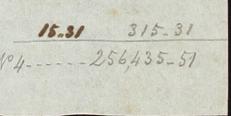 15-31 315-31
Nº 4------256,435-51